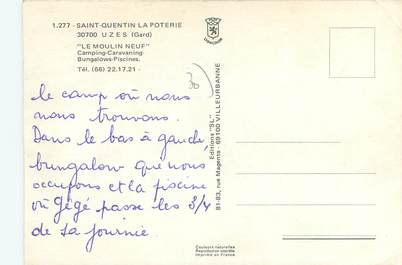 1.277 - SAINT-QUENTIN LA POTERIE
30700 UZES (Gard)
"LE MOULIN NEUF"
Camping-Caravaning-
Bungalows-Piscines.
Tél. (66) 22.17.21 -
30
le camp où nous
nous trouvons.
Dans le bas à gauche,
bungalow que nous
occupons et la piscine
où gégé passe les 3/4
de sa journée
Editions "SL"
81-83, rue Magenta - 69100 VILLEURBANNE
Couleurs naturelles
Reproduction interdite
Imprimé en France